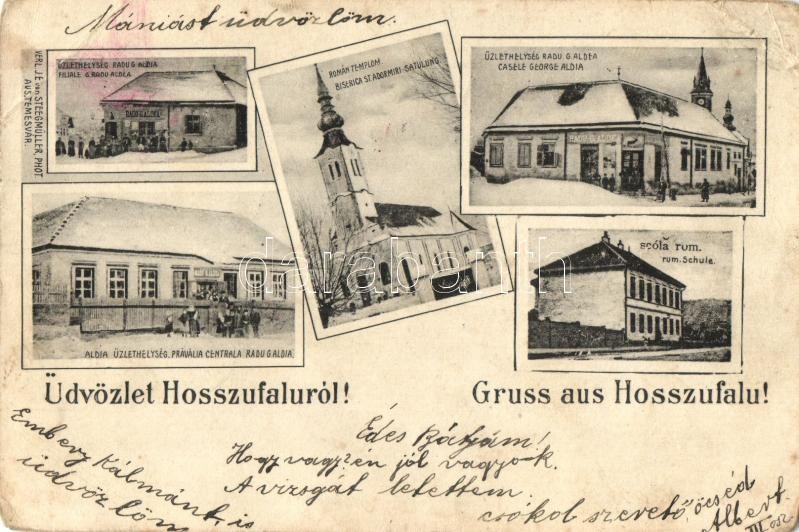 Máriást üdvözlöm.
VERL. J.E. von STEEGMÜLLER, PHOT.
AUS TEMESVÁR.
ÜZLETHELYSÉG RADU G. ALDIA
FILIALE G. RADU ALDEA
RADU G. ALDEA
ROMÁN TEMPLOM
BISERICA ST. ADORMIRI-SATULUNG
ÜZLETHELYSÉG RADU G. ALDEA
CASELE GEORGE ALDIA
RADU G. ALDEA
ALDIA ÜZLETHELYSÉG. PRÁVÁLIA CENTRALA RADU G. ALDIA.
scóla rum.
rum. Schule.
darabanth
Üdvözlet Hosszufaluról!
Gruss aus Hosszufalu!
Embery Kálmánt is
üdvözlöm
Édes Bátyám!
Hogy vagy? én jól vagyok.
A vizsgát letettem.
csókol szerető öcséd
Albert
III. osz